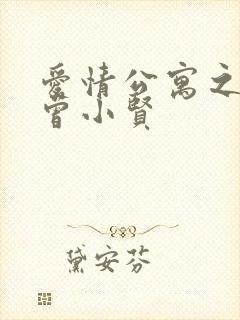 愛情公寓之
曾小賢
黛安芬